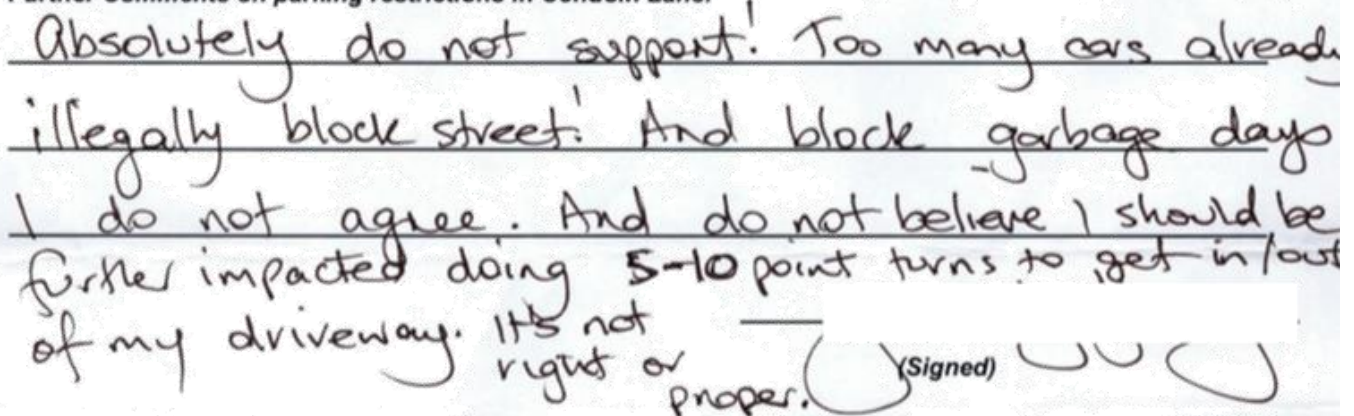 Absolutely do not support! Too many cars already
illegally block street! And block garbage days
I do not agree. And do not believe I should be
further impacted doing 5-10 point turns to get in/out
of my driveway. It's not
right or
proper.
(Signed)